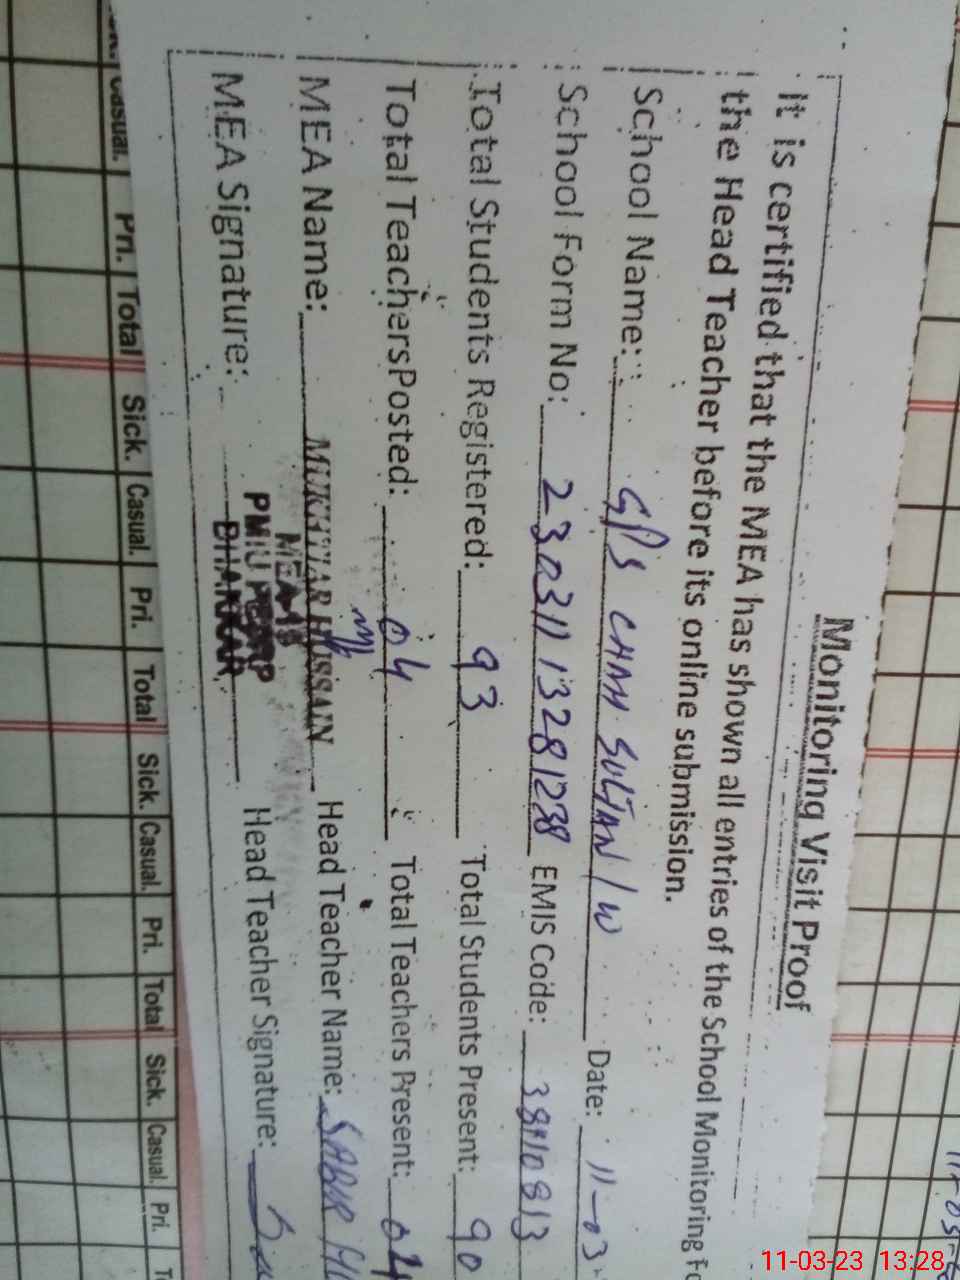 Monitoring Visit Proof
It is certified that the MEA has shown all entries of the School Monitoring Fo
the Head Teacher before its online submission.
School Name: GPS CHAH SULTAN / W Date: 11-03-
School Form No: 230311 13281238 EMIS Code: 38110813
Total Students Registered: 93 Total Students Present: 90
Total Teachers Posted: 04 Total Teachers Present: 04
MEA Name: MUKHTIAR HUSSAIN Head Teacher Name: SABIR HU
MEA-18
MEA Signature: Head Teacher Signature:
PMIU PESRP
BHAKKAR
Casual. Pri. Total Sick. Casual. Pri. Total Sick. Casual. Pri. Total Sick. Casual. Pri. T
11-03-23 13:28